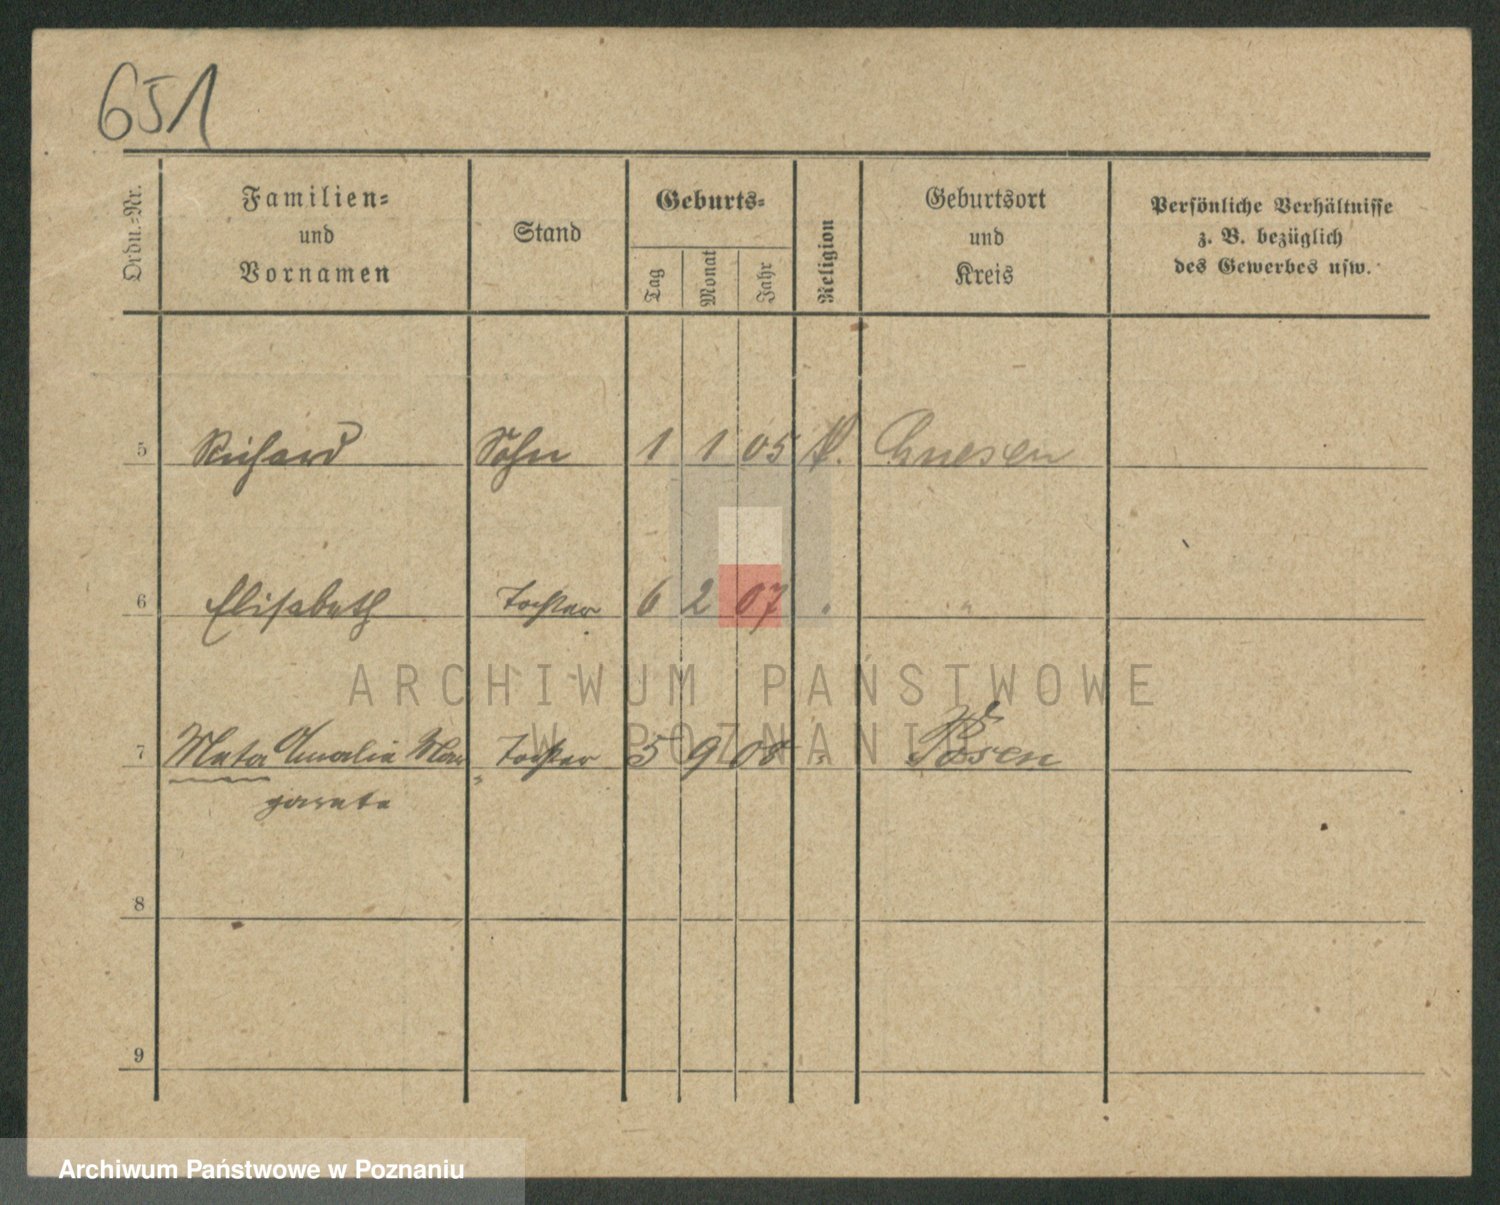 651
Ordn.-Nr.
Familien-
und
Vornamen
Stand
Geburts-
Tag
Monat
Jahr
Religion
Geburtsort
und
Kreis
Persönliche Verhältnisse
z. B. bezüglich
des Gewerbes usw.
5 Richard Sohn 1 1 05 Gnesen
6 Elisabeth Tochter 6 2 07 . "
ARCHIWUM PAŃSTWOWE
W POZNANIU
7 Amalie Mar- Tochter 5 9 08 " Posen
garete
8
9
Archiwum Państwowe w Poznaniu